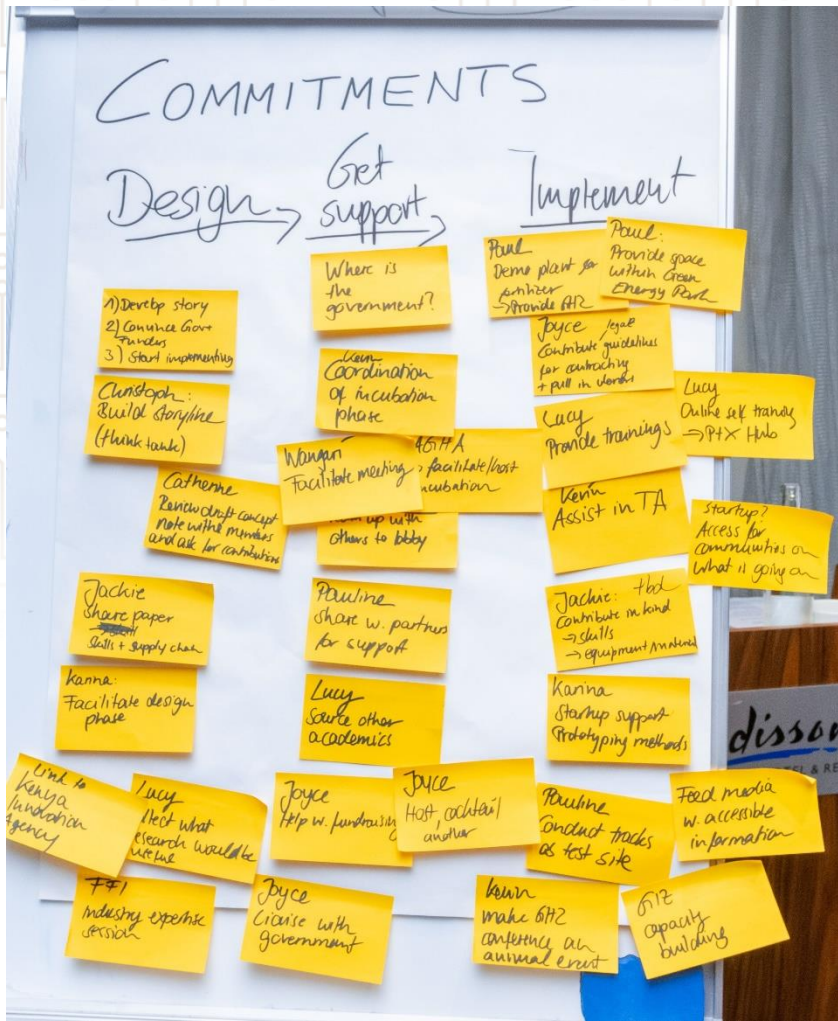 COMMITMENTS
Design
Get
support
Implement
1) Develop story
2) Convince Gov+
Funders
3) Start implementing
Christoph:
Build storyline
(think tank)
Catherine
Review draft concept
note with members
and ask for contributions
Jackie
share paper
skills + supply chain
Karina:
Facilitate design
phase
Link to
Kenya
Innovation
Agency
Lucy
what
research would be
FFI
industry expertise
session
Where is
the
government?
Kevin
Coordination
of incubation
phase
Wangari
Facilitate meeting
AGHA
facilitate/host
incubation
up with
others to lobby
Pauline
share w. partners
for support
Lucy
Source other
academics
Joyce
Help w. fundraising
Joyce
Host, cocktail
another
Joyce
Liaise with
government
Paul
Demo plant for
fertilizer
→ Provide GH2
Paul:
Provide space
within Green
Energy Park
Joyce legal
Contribute guidelines
for contracting
+ pull in donors
Lucy
Provide trainings
Lucy
Online self training
→ PtX Hub
Kevin
Assist in TA
Startup?
Access for
communities on
what is going on
Jackie: tbd
Contribute in kind
→ skills
→ equipment/material
Karina
Startup support
Prototyping methods
Pauline
Conduct tracks
as test site
Feed media
w. accessible
information
Kevin
make GH2
conference an
animal event
GIZ
capacity
building
disson
TEL & RE